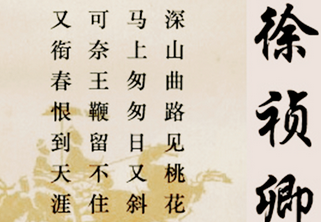 徐祯卿
深山曲路见桃花
马上匆匆日又斜
可奈王鞭留不住
又衔春恨到天涯